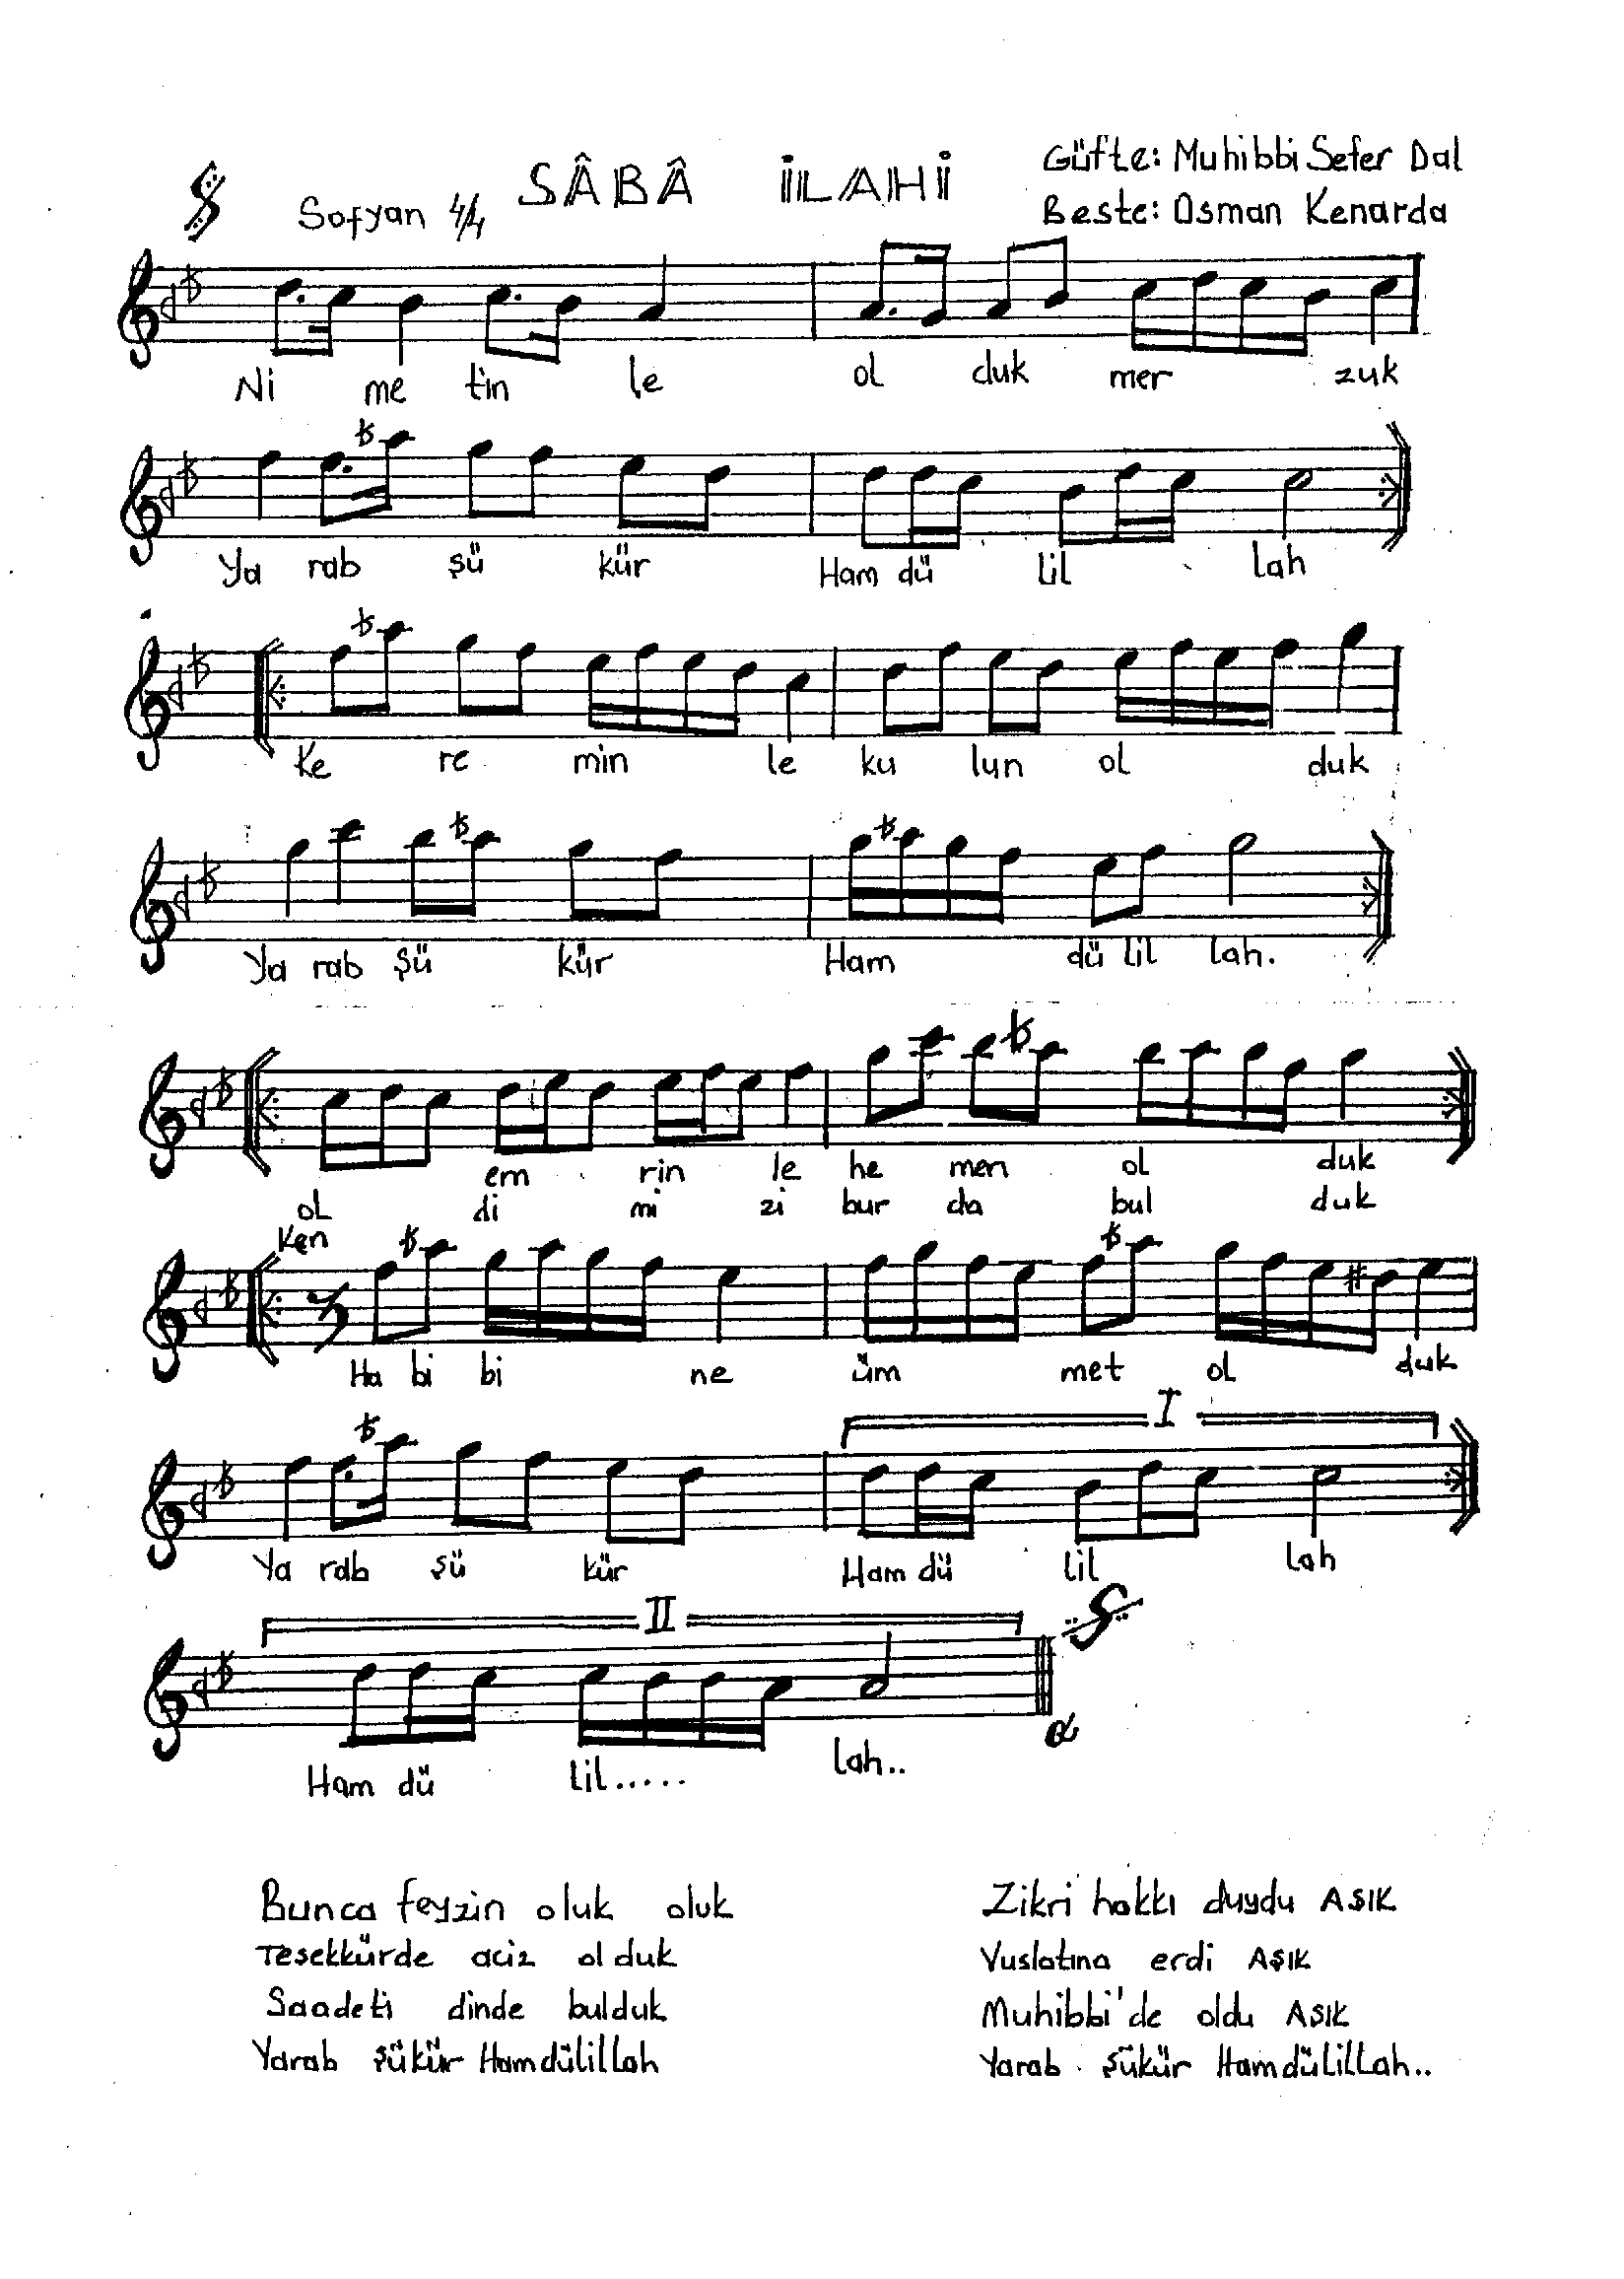 SÂBÂ İLAHİ
Güfte: Muhibbi Sefer Dal
Sofyan 4/4
Beste: Osman Kenarda
Ni me tin le ol duk mer zuk
Ya rab şü kür Ham dü lil lah
Ke re min le ku lun ol duk
Ya rab şü kür Ham dü lil lah.
em rin le he men ol duk
ol di mi zi bur da bul duk
Ken
Ha bi bi ne üm met ol duk
I
Ya rab şü kür Ham dü lil lah
II
Ham dü lil..... lah..
Bunca feyzin oluk oluk
Tesekkürde aciz olduk
Saadeti dinde bulduk
Yarab şükür Hamdülillah
Zikri hakkı duydu AŞIK
Vuslatına erdi AŞIK
Muhibbi'de oldu AŞIK
Yarab şükür Hamdülillah..